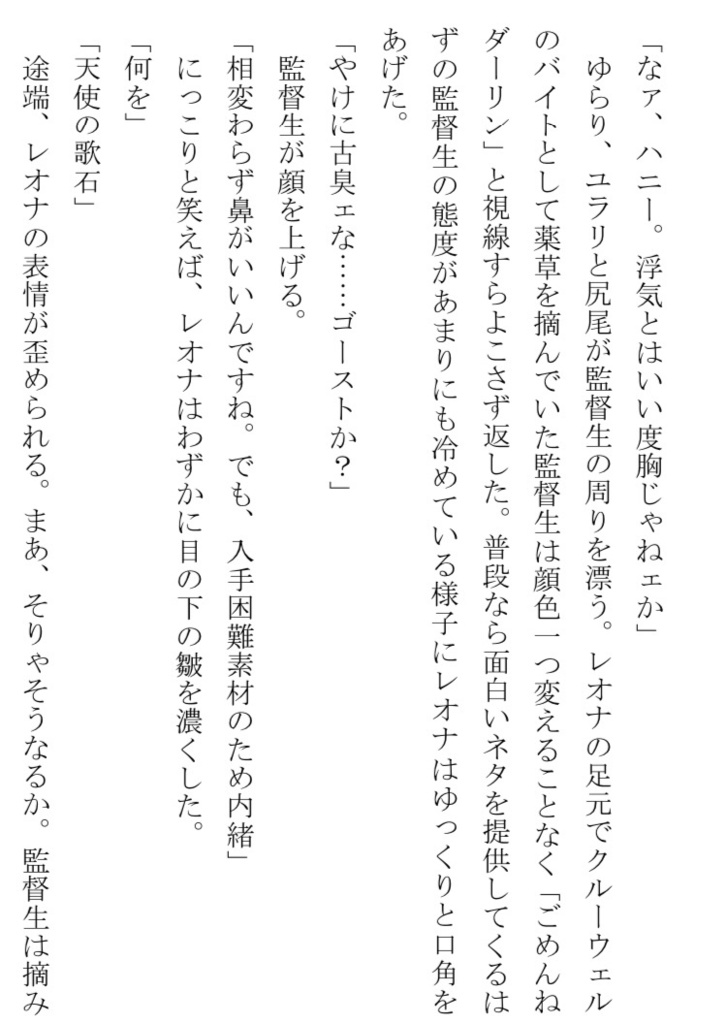 「なァ、ハニー。浮気とはいい度胸じゃねェか」
ゆらり、ユラリと尻尾が監督生の周りを漂う。レオナの足元でクルーウェル
のバイトとして薬草を摘んでいた監督生は顔色一つ変えることなく「ごめんね
ダーリン」と視線すらよこさず返した。普段なら面白いネタを提供してくるは
ずの監督生の態度があまりにも冷めている様子にレオナはゆっくりと口角を
あげた。
「やけに古臭ェな……ゴーストか？」
監督生が顔を上げる。
「相変わらず鼻がいいんですね。でも、入手困難素材のため内緒」
にっこりと笑えば、レオナはわずかに目の下の皺を濃くした。
「何を」
「天使の歌石」
途端、レオナの表情が歪められる。まあ、そりゃそうなるか。監督生は摘み